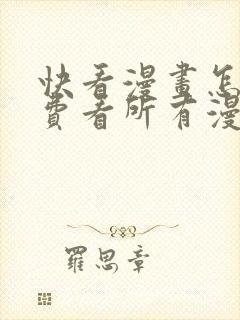 快看漫畫怎
費看所有漫
羅思章